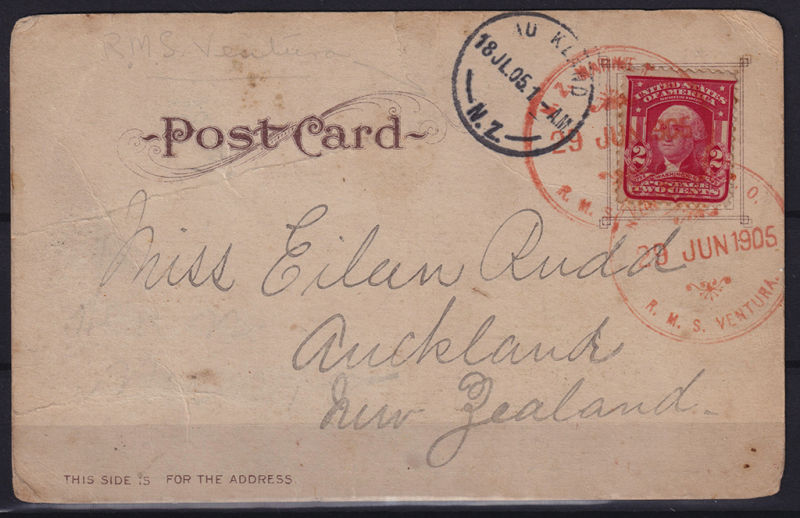 R.M.S. Ventura
POST CARD
AUCKLAND
18 JL.05.1-AM
N.Z.
N.Z. MARINE P.
29 JUN 1905
R. M. S.
UNITED STATES
OF AMERICA
SERIES 1902
2 2
WASHINGTON
POSTAGE
TWO CENTS
O.
29 JUN 1905
R. M. S. VENTURA.
Miss Eileen Rudd
Auckland
New Zealand
THIS SIDE IS FOR THE ADDRESS